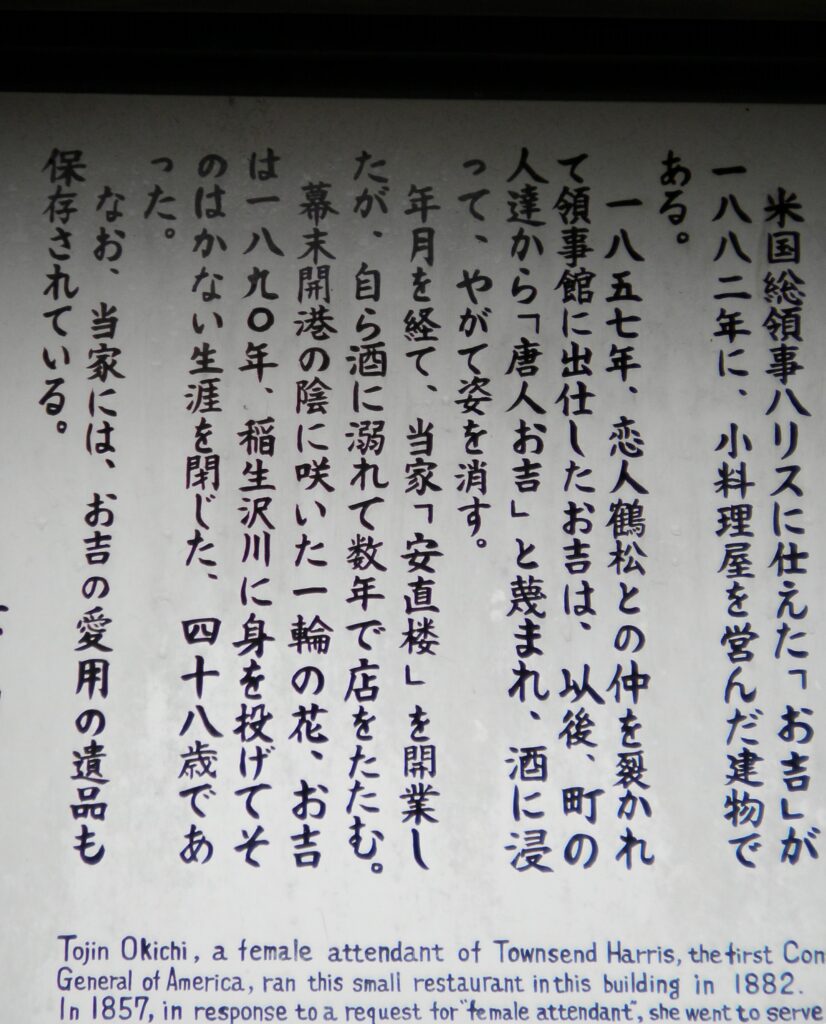 米国総領事ハリスに仕えた「お吉」が
一八八二年に、小料理屋を営んだ建物で
ある。
一八五七年、恋人鶴松との仲を裂かれ
て領事館に出仕したお吉は、以後、町の
人達から「唐人お吉」と蔑まれ、酒に浸
って、やがて姿を消す。
年月を経て、当家「安直楼」を開業し
たが、自ら酒に溺れて数年で店をたたむ。
幕末開港の陰に咲いた一輪の花、お吉
は一八九〇年、稲生沢川に身を投げてそ
のはかない生涯を閉じた、四十八歳であ
った。
なお、当家には、お吉の愛用の遺品も
保存されている。
Tojin Okichi, a female attendant of Townsend Harris, the first Con
General of America, ran this small restaurant in this building in 1882.
In 1857, in response to a request for "female attendant", she went to serve